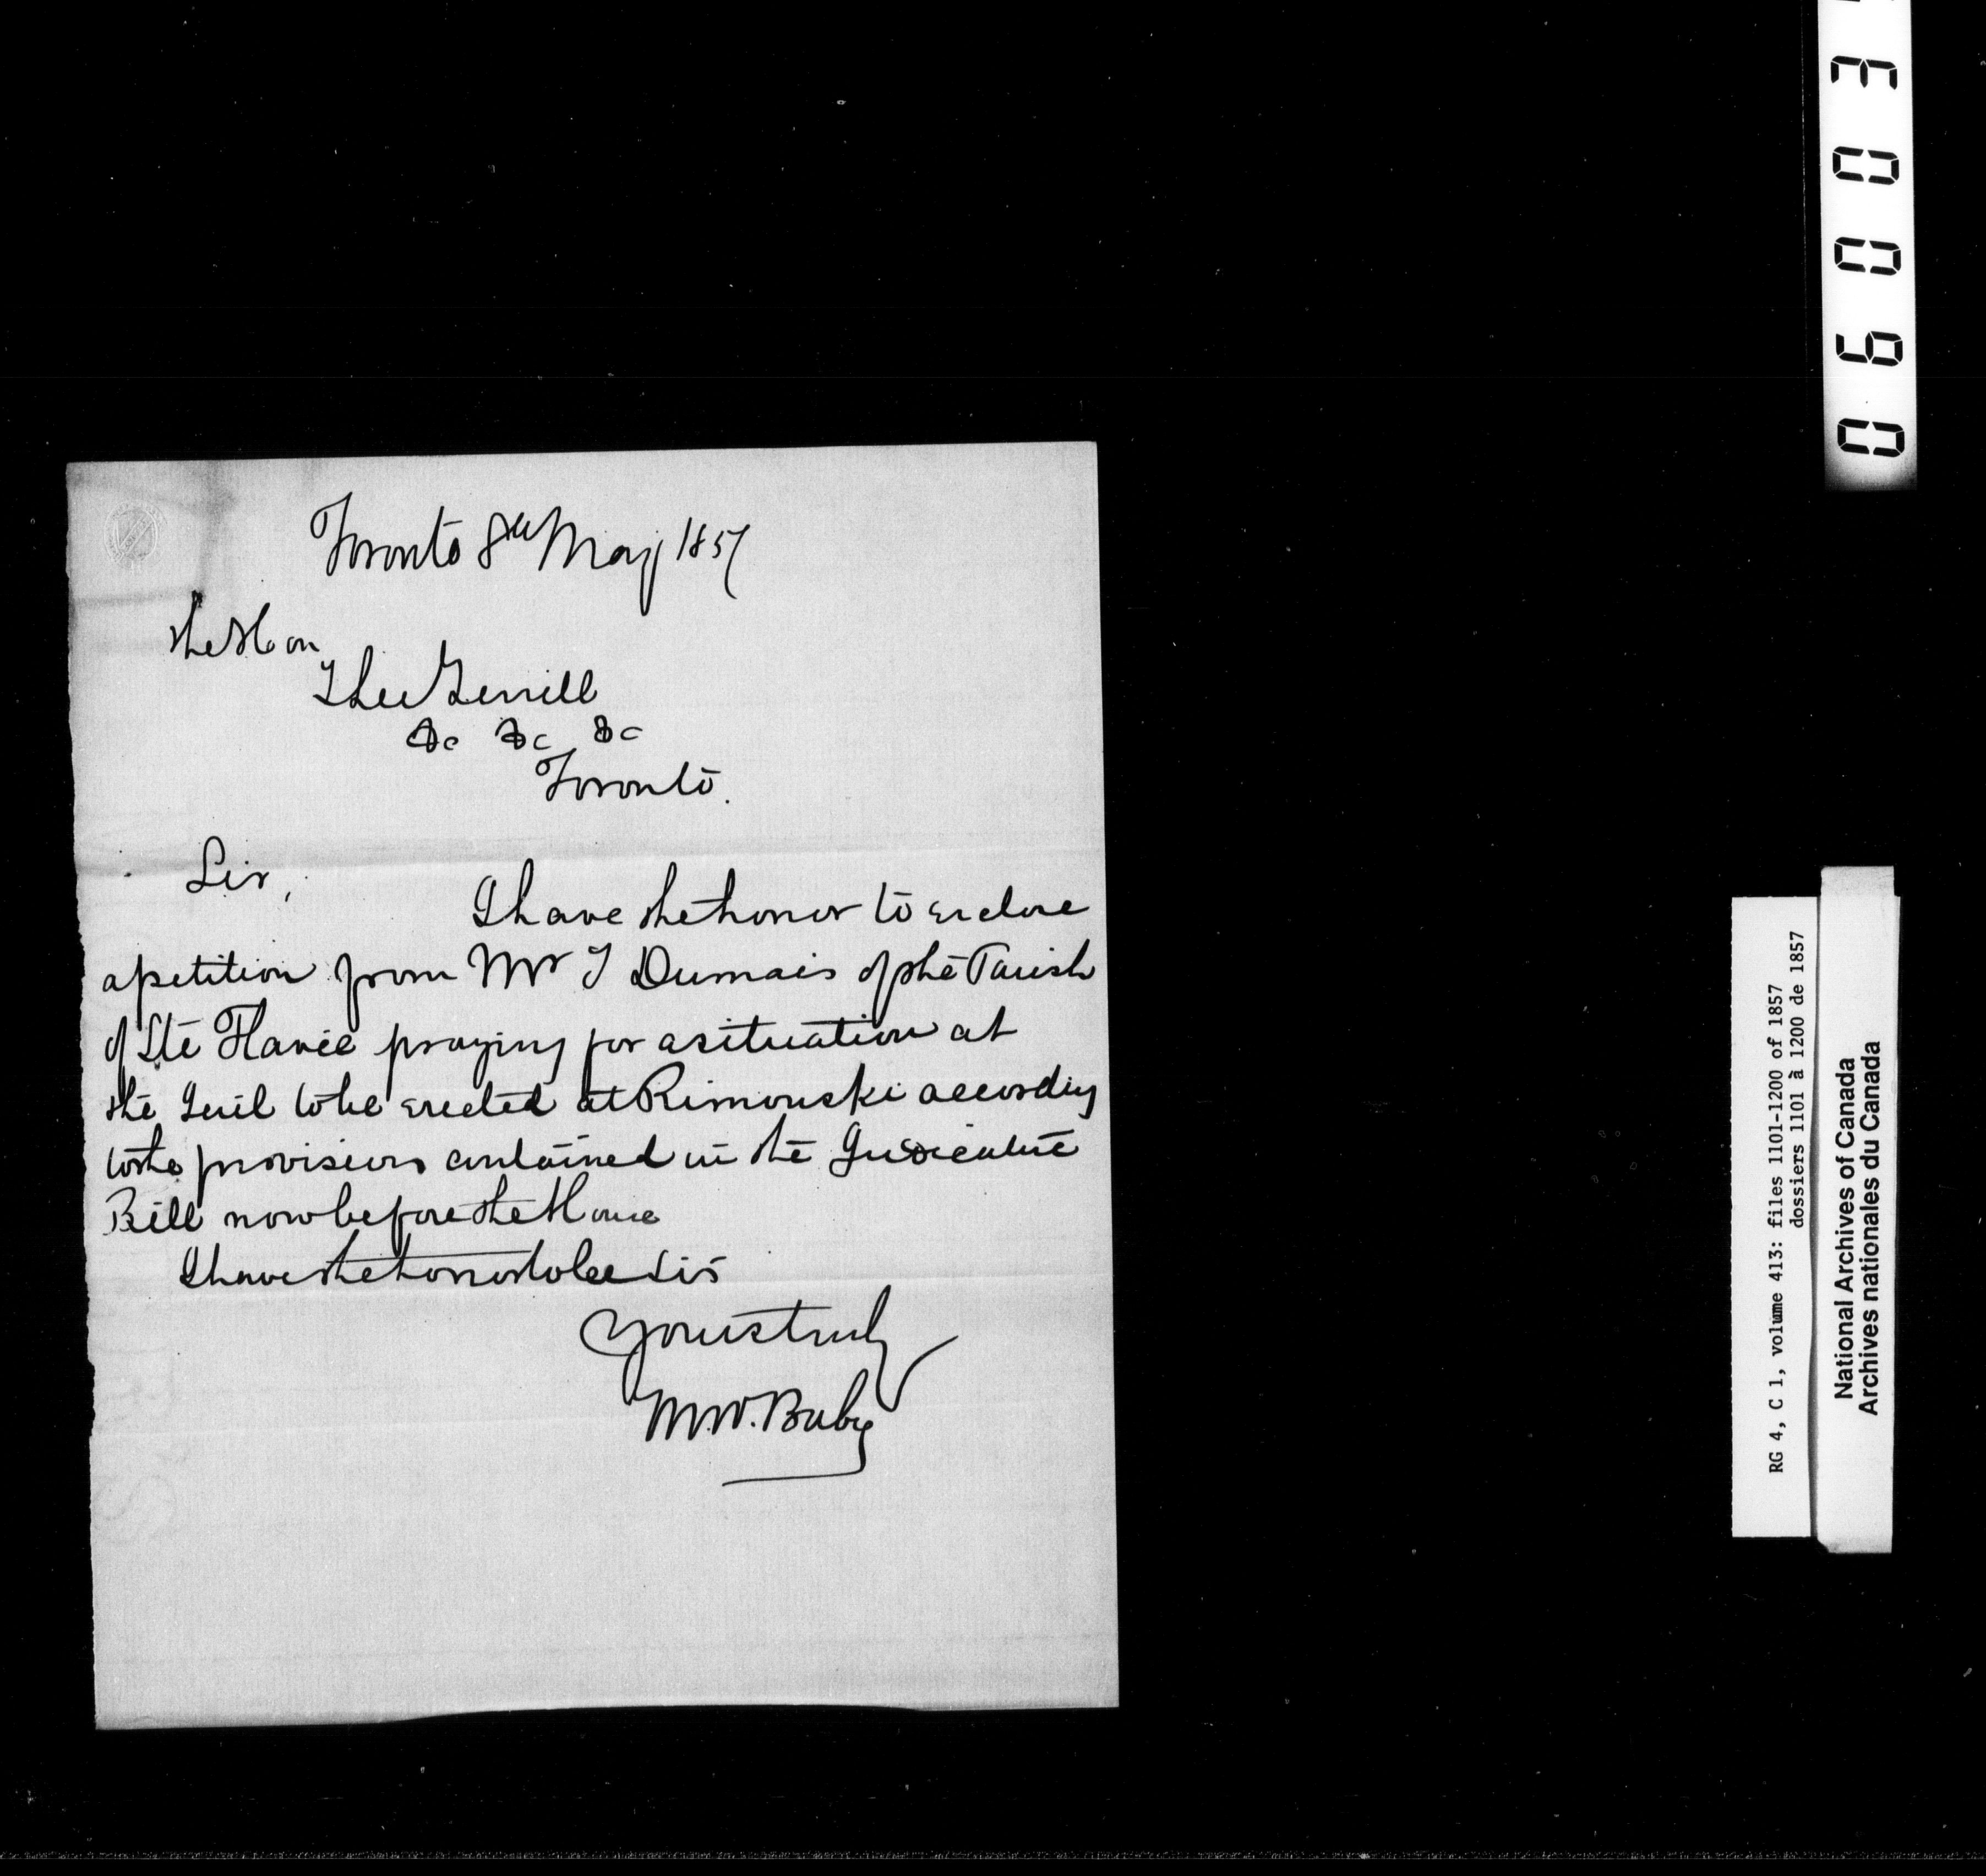 Toronto 8th May 1857
The Hon
Thee Terrill
&c &c &c
Toronto.
Sir,
I have the honor to enclose
a petition from Mr T Dumais of the Parish
of Ste Flavie praying for a situation at
the Guil to be erected at Rimouski according
to the provisions contained in the Judicature
Bill now before the House
I have the honor to be Sir
Yours truly
M.W. Baby
06003
RG 4, C 1, volume 413: files 1101-1200 of 1857
dossiers 1101 à 1200 de 1857
National Archives of Canada
Archives nationales du Canada